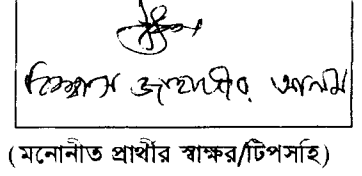 বিশ্বাস জাহাঙ্গীর আলম
(মনোনীত প্রার্থীর স্বাক্ষর/টিপসহি)